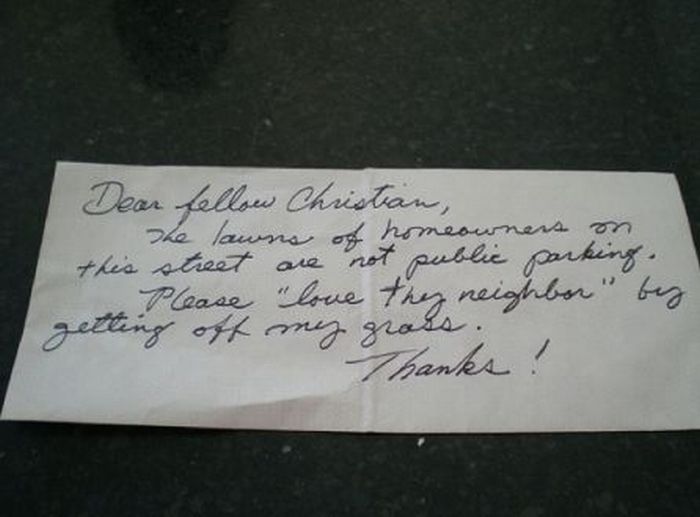 Dear fellow Christian,
The lawns of homeowners on
this street are not public parking.
Please "love thy neighbor" by
getting off my grass.
Thanks!